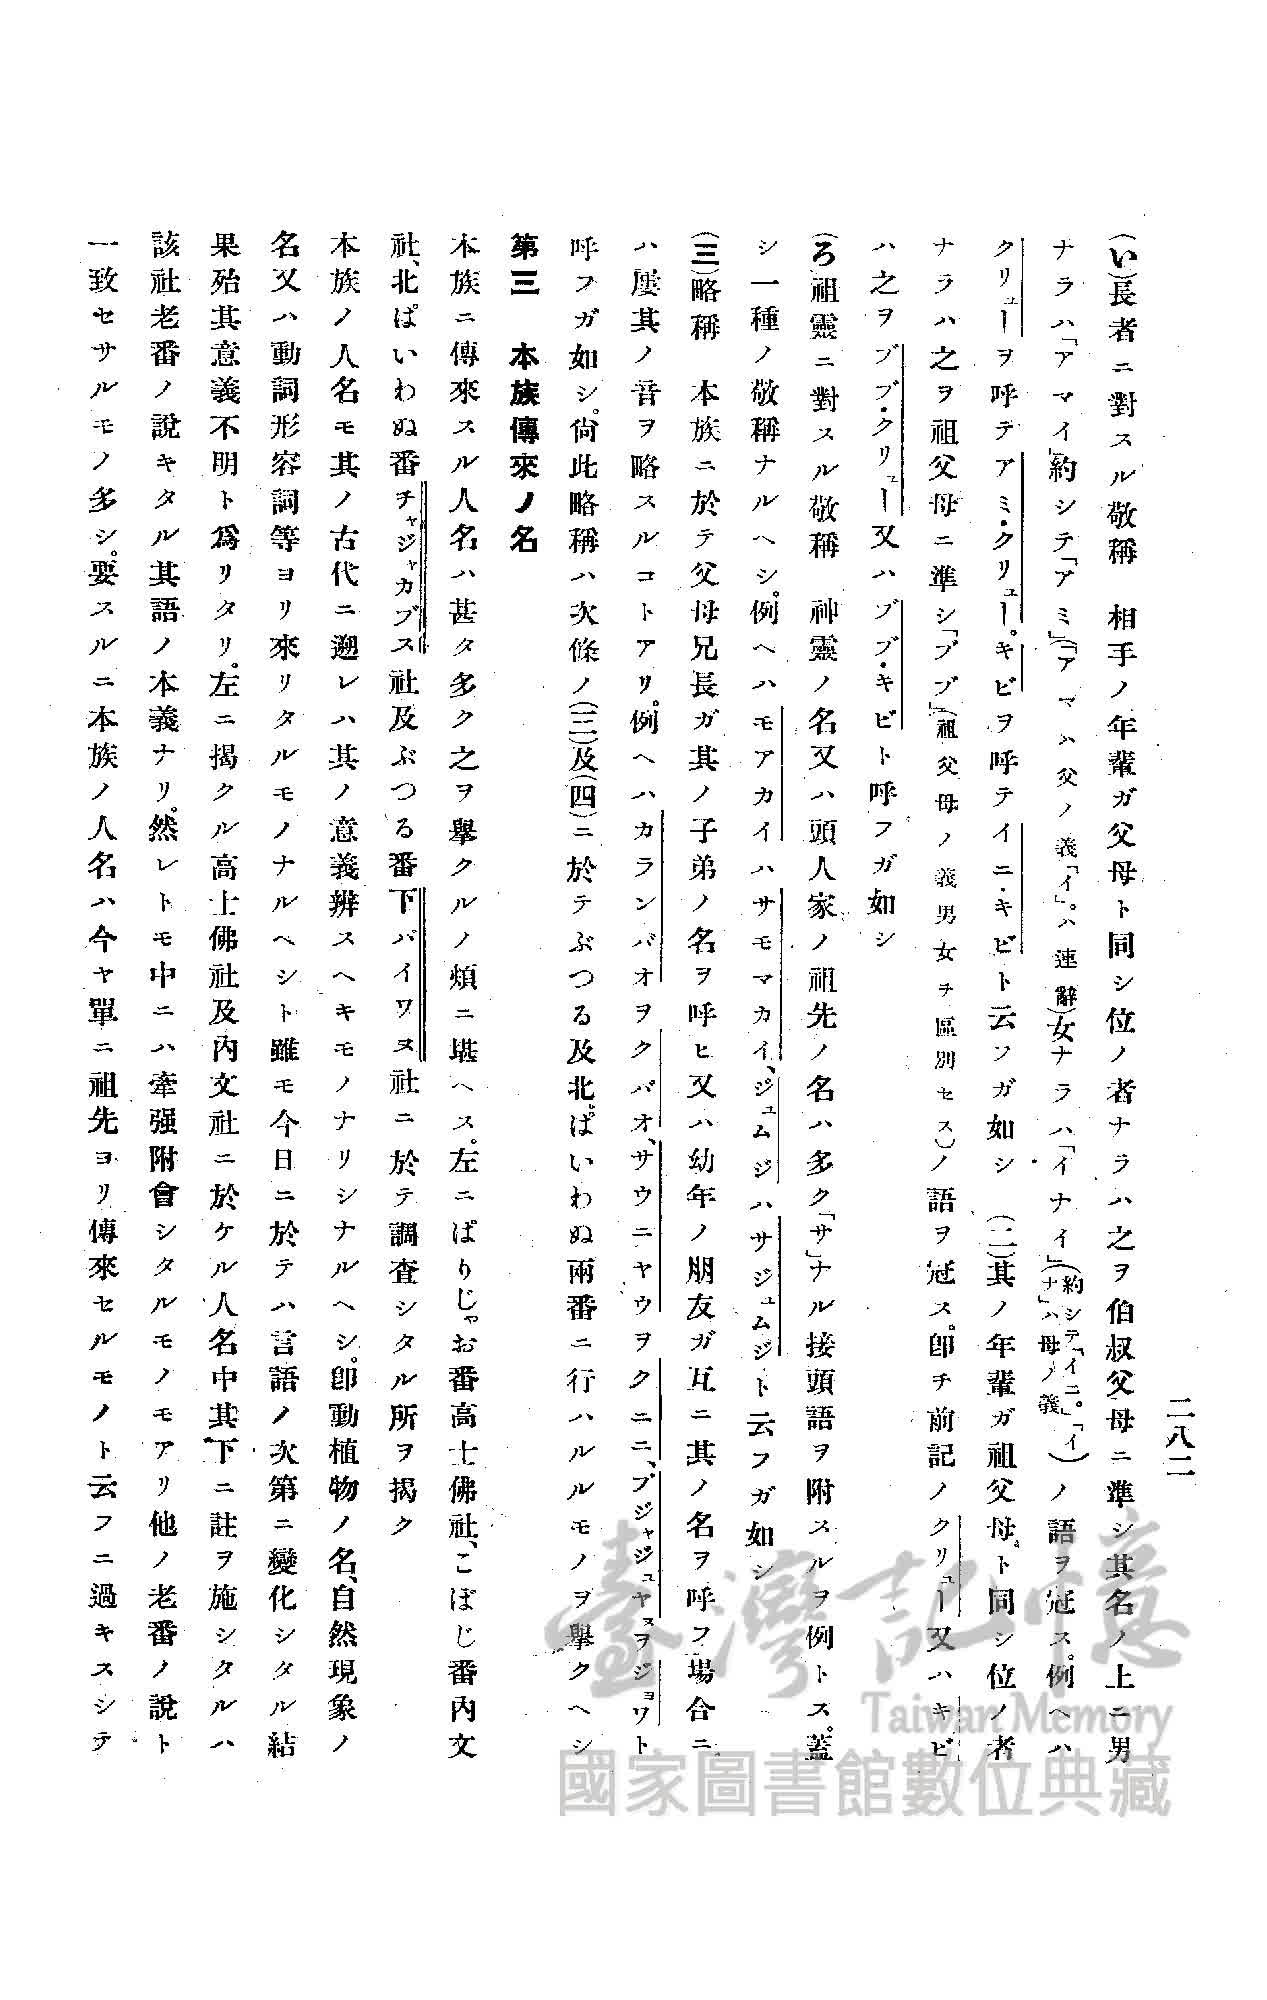 二八二
(い)長者ニ對スル敬稱　相手ノ年輩ガ父母ト同シ位ノ者ナラハ之ヲ伯叔父母ニ準シ其名ノ上ニ男
ナラハ「アマイ」約シテ「アミ」(「アマ」ハ父ノ義「イ」ハ連辭)女ナラハ「イナイ」(約シテ「イニ」。「イナ」ハ母ノ義「イ」)ノ語ヲ冠ス。例ヘハ
クリューヲ呼テアミ・クリュー。キビヲ呼テイニ・キビト云フガ如シ　(二)其ノ年輩ガ祖父母ト同シ位ノ者
ナラハ之ヲ祖父母ニ準シ「ブブ」(祖父母ノ義男女ヲ區別セス)ノ語ヲ冠ス。卽チ前記ノクリュー又ハキビ
ハ之ヲブブ・クリュー又ハブブ・キビト呼フガ如シ
(ろ)祖靈ニ對スル敬稱　神靈ノ名又ハ頭人家ノ祖先ノ名ハ多ク「サ」ナル接頭語ヲ附スルヲ例トス。蓋
シ一種ノ敬稱ナルヘシ。例ヘハモアカイハサモマカイ、ジュムジハサジュムジト云フガ如シ
(三)略稱　本族ニ於テ父母兄長ガ其ノ子弟ノ名ヲ呼ヒ又ハ幼年ノ朋友ガ互ニ其ノ名ヲ呼フ場合ニ
ハ屢其ノ音ヲ略スルコトアリ。例ヘハカランバオヲクバオ、サウニヤウヲクニニ、ブジャジュヤヌヲジョワト
呼フガ如シ。尙此略稱ハ次條ノ(三)及(四)ニ於テぶつる及北ぱいわぬ兩番ニ行ハルルモノヲ擧クヘシ
第三　本族傳來ノ名
本族ニ傳來スル人名ハ甚タ多ク之ヲ擧クルノ煩ニ堪ヘス。左ニぱりじゃお番高士佛社、こぼじ番内文
社、北ぱいわぬ番チャジャカブス社及ぶつる番下バイワヌ社ニ於テ調査シタル所ヲ揭ク
本族ノ人名モ其ノ古代ニ遡レハ其ノ意義辨スヘキモノナリシナルヘシ。卽動植物ノ名、自然現象ノ
名又ハ動詞形容詞等ヨリ來リタルモノナルヘシト雖モ今日ニ於テハ言語ノ次第ニ變化シタル結
果殆其意義不明ト爲リタリ。左ニ揭クル高士佛社及內文社ニ於ケル人名中其下ニ註ヲ施シタルハ
該社老番ノ說キタル其語ノ本義ナリ。然レトモ中ニハ牽强附會シタルモノモアリ他ノ老番ノ說ト
一致セサルモノ多シ。要スルニ本族ノ人名ハ今ヤ單ニ祖先ヨリ傳來セルモノト云フニ過キスシテ
臺灣記憶
Taiwan Memory
國家圖書館數位典藏